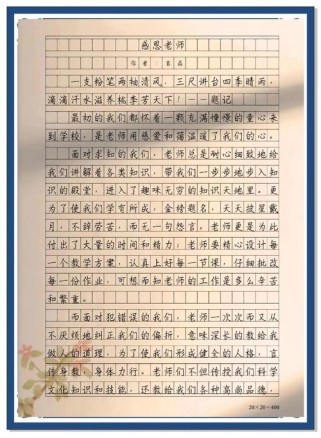 感恩老师
作者：袁磊
一支粉笔两袖清风，三尺讲台四季晴雨，
滴滴汗水滋养桃李苦天下！--题记
最初的我们都怀着一颗充满憧憬的童心来
到学校，是老师用慈爱和蔼温暖了我们的心。
面对求知的我们，老师总是耐心细致地给
我们讲解着各类知识，带我们一步步地步入知
识的殿堂，进入了趣味无穷的知识天地里。更
为了使我们学有所成，金榜题名，天天披星戴
月，不辞劳苦，而无一句怨言。老师更是为此
付出了大量的时间和精力，老师要精心设计每
一个教学方案，认真上好每一节课，仔细批改
每一份作业，可想而知老师的工作是多么辛苦
和繁重。
而面对犯错误的我们，老师一次次而又从
不厌烦地纠正我们的偏折，意味深长的教给我
做人的道理，为了使我们形成健全的人格，言
传身教，身体力行。老师们不但传授我们科学
文化知识和技能，还教给我们各种高尚品德，
20×20=400